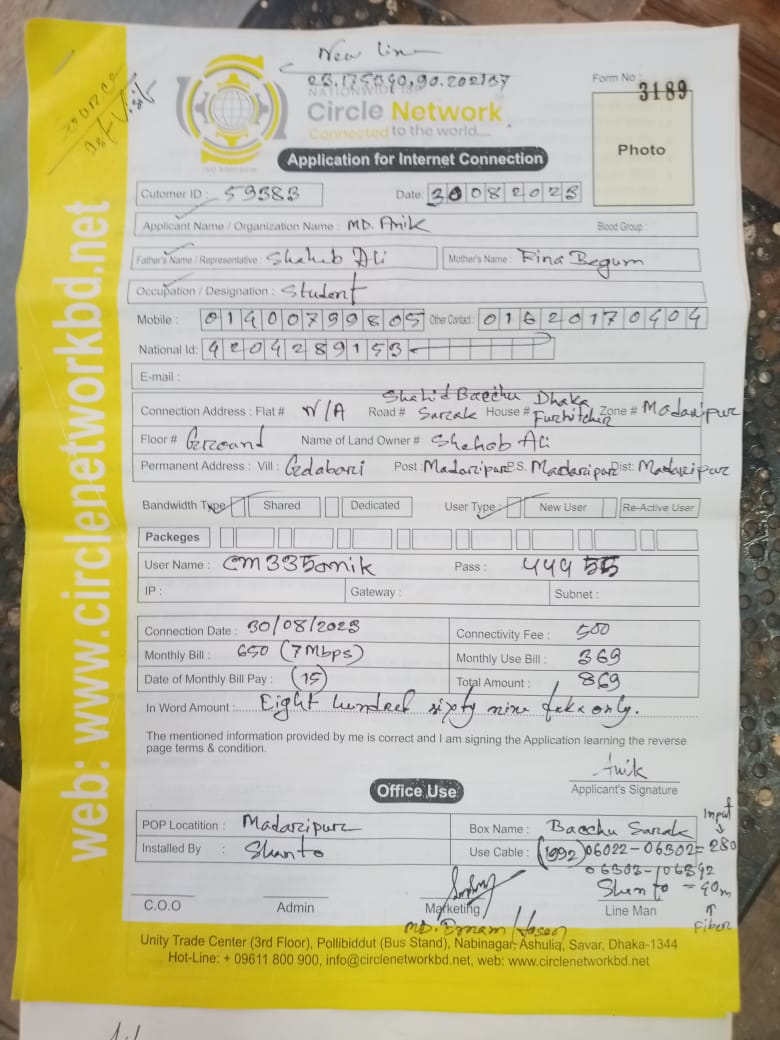 New line
23.175840,90.202137
Source
1st Visit
NATIONWIDE ISP
Circle Network
Connected to the world....
Form No :
3189
Photo
Application for Internet Connection
Cutomer ID : 59383
Date: 30082023
Applicant Name / Organization Name : MD. Anik
Blood Group :
Father's Name / Representative : Shahab Ali
Mother's Name : Rina Begum
Occupation / Designation : Student
Mobile : 01400799805
Other Contact : 01620170404
National Id: 4204289153
E-mail :
Connection Address : Flat # N/A Road # Shahid Bacchu Sarak House # Dhaka Zone # Madaripur
Floor # Ground Name of Land Owner # Shahab Ali
Permanent Address : Vill : Post : Madaripur P.S. Madaripur Dist: Madaripur
Bandwidth Type Shared Dedicated User Type : New User Re-Active User
Packeges
User Name : cm335anik Pass : 44455
IP : Gateway : Subnet :
Connection Date : 30/08/2023 Connectivity Fee : 500
Monthly Bill : 650 (7 Mbps) Monthly Use Bill : 369
Date of Monthly Bill Pay : (15) Total Amount : 869
In Word Amount : Eight hundred sixty nine taka only.
The mentioned information provided by me is correct and I am signing the Application learning the reverse
page terms & condition.
Anik
Applicant's Signature
Office Use
POP Locatition : Madaripur Box Name : Bacchu Sarak
Installed By : Shanto Use Cable : (1992) 06022-06302=280
Input
06303-06342
= 40m
Fiber
Shanto
C.O.O Admin Marketing Line Man
Unity Trade Center (3rd Floor), Pollibiddut (Bus Stand), Nabinagar, Ashulia, Savar, Dhaka-1344
Hot-Line: + 09611 800 900, info@circlenetworkbd.net, web: www.circlenetworkbd.net
web: www.circlenetworkbd.net